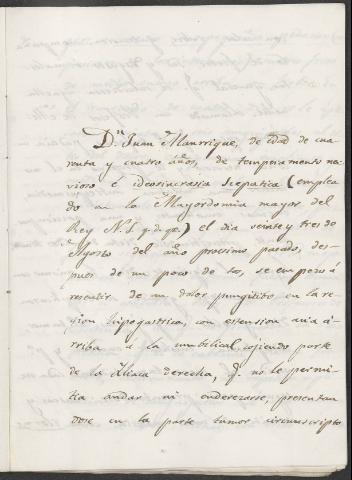 Dn. Juan Manrrique, de edad de cua-
renta y cuatro años, de temperamento ne-
vioso é ideosincrasia Scepatica (emplea
do en la Mayordomia mayor del
Rey N. S. q. d. g.) el dia veinte y tres de
Agosto del año procsimo pasado, des-
pues de un poco de tos, se empesó á
resentir de un dolor pungitibo en la re-
gion hipogastrica, con estension acia á-
rriba á la umbelical cojiendo parte
de la Yliaca derecha, q. no le permi-
tia andar ni enderezarse, presentan
dose en la parte tumor circunscripto